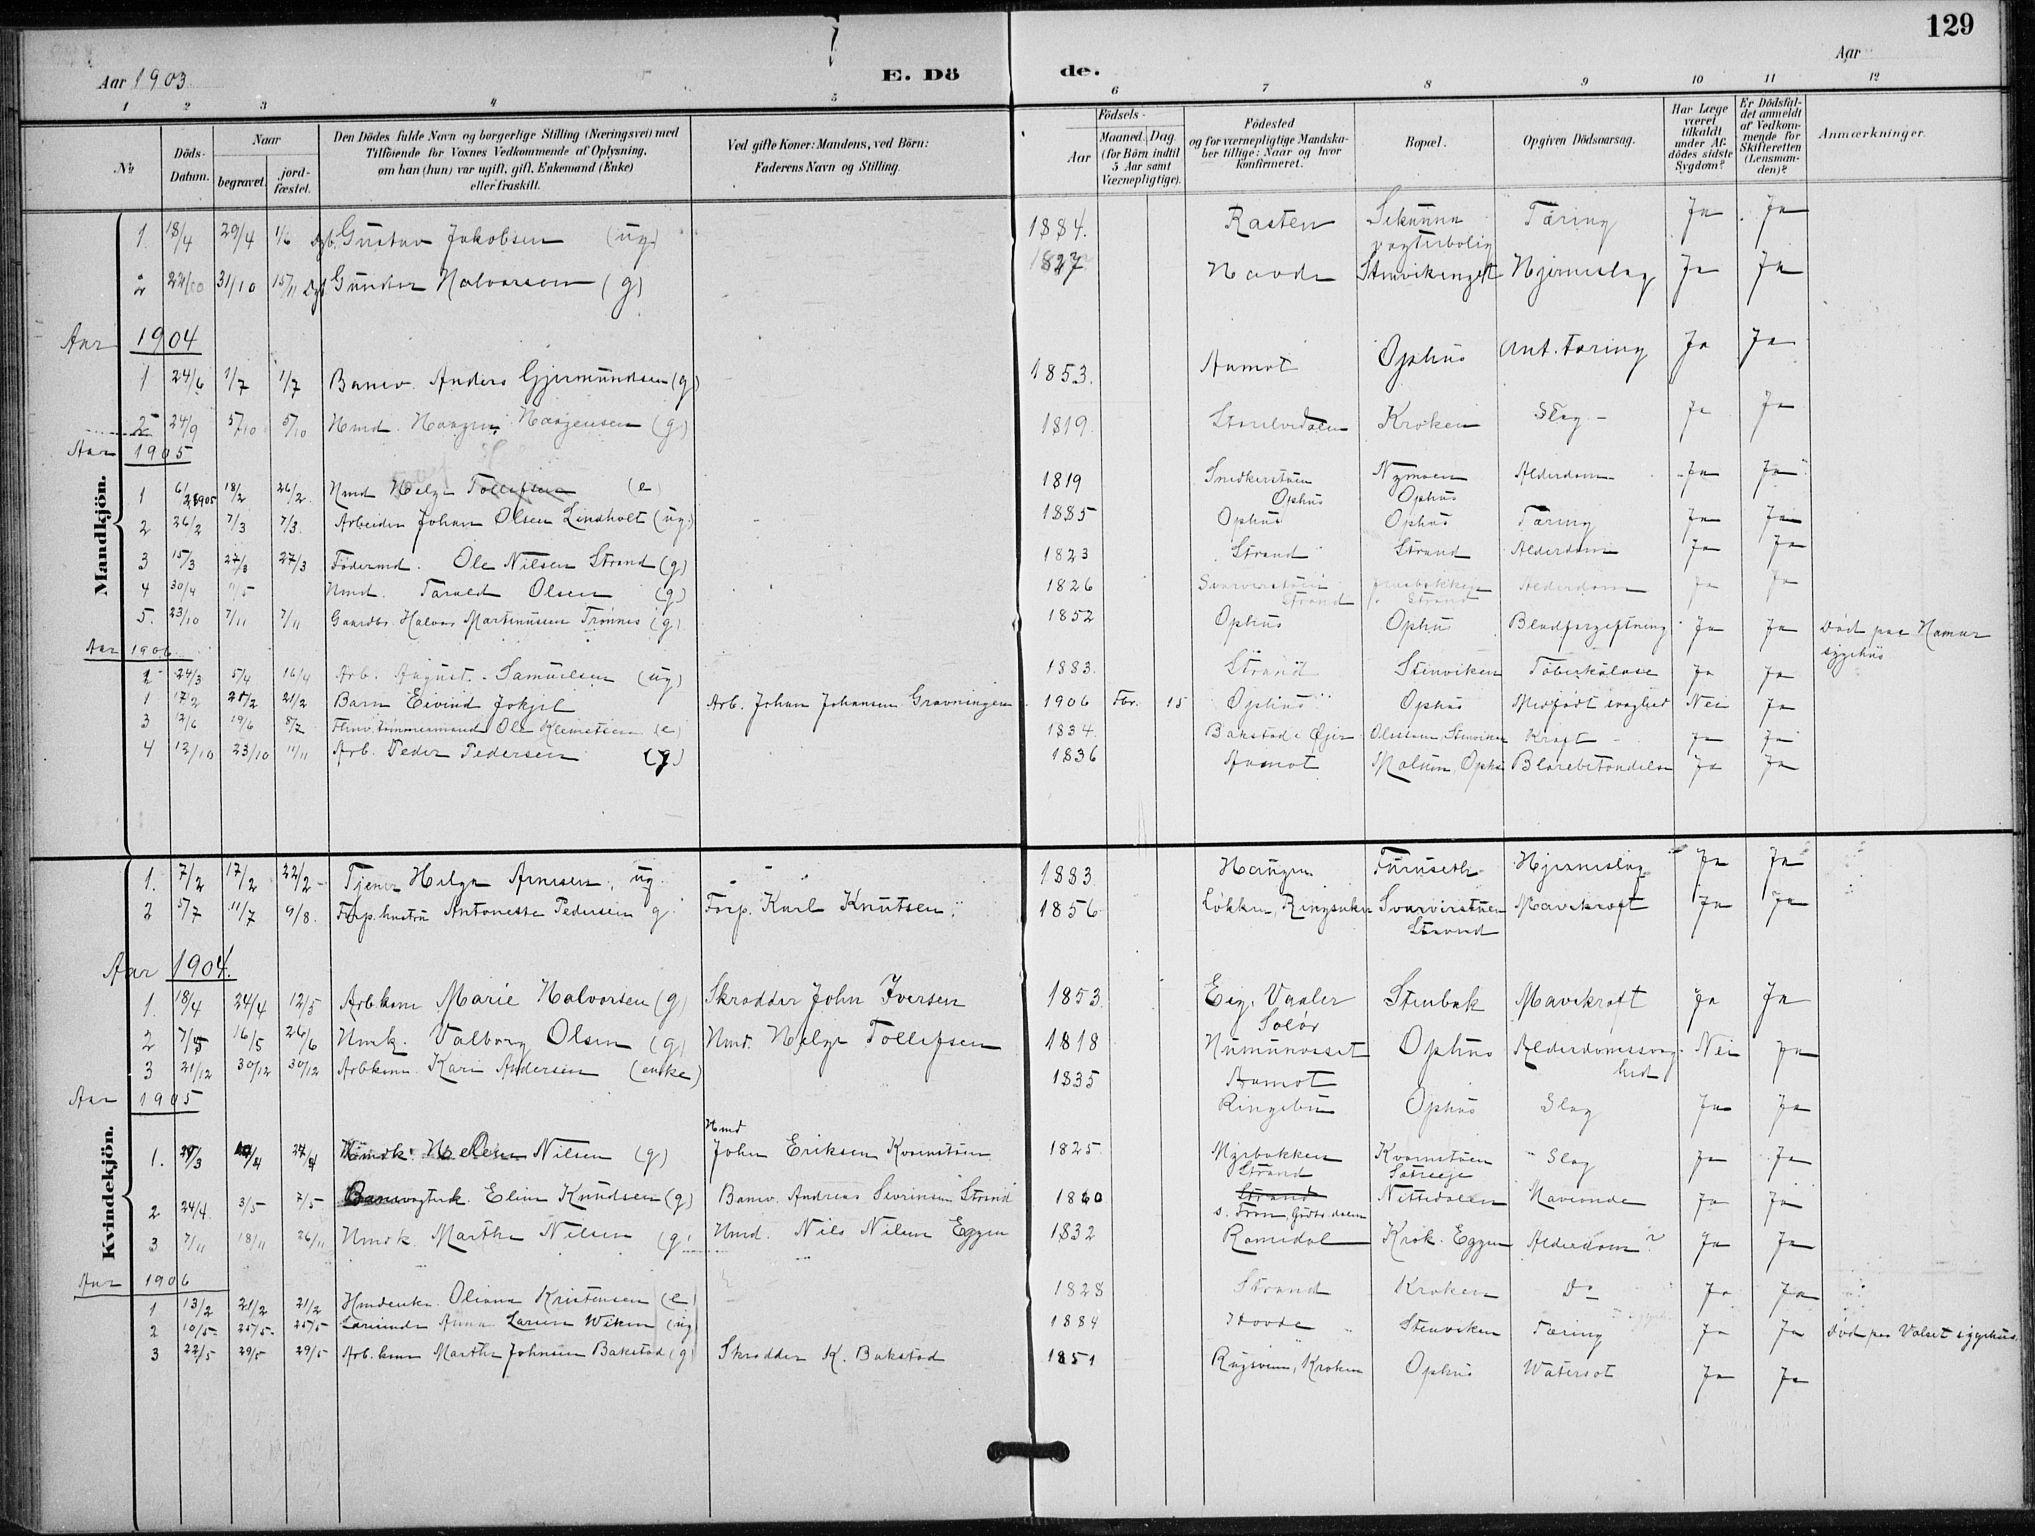 129
Aar 1903
E. Dö de.
Aar
1 2 3 4 5 6 7 8 9 10 11 12
№
Döds-Datum.
Naar
begravet.
jord-fæstet.
Den Dödes fulde Navn og borgerlige Stilling (Næringsvei) med
Tilföiende for Voxnes Vedkommende af Oplysning,
om han (hun) var ugift, gift, Enkemand (Enke)
eller fraskilt.
Ved gifte Koner: Mandens, ved Börn:
Faderens Navn og Stilling.
Födsels-
Aar
Maaned. Dag.
(for Börn indtil
5 Aar samt
Værnepligtige).
Födested
og for værnepligtige Mandska-
ber tillige: Naar og hvor
konfirmeret.
Bopæl.
Opgiven Dödsaarsag.
Har Læge
været
tilkaldt
under Af-
dödes sidste
Sygdom?
Er Dödsfal-
det anmeldt
af Vedkom-
mende for
Skifteretten
(Lensman-
den)?
Anmærkninger.
Mandkjön.
1. 18/4 29/4 1/6 Gustav Jakobsen (ug.) 1884. Rasten Tæring Ja Ja
2 31/10 15/11 Gunder Halvorsen (g) 1827 Hovde Hjerneslag Ja Ja
Aar 1904
1 24/6 1/7 1/7 Banev. Anders Gjermundsen (g) 1853. Aamot Ophus Ant. tæring Ja Ja
2 24/9 5/10 5/10 Hmd. Haagensen (g) 1819. Storelvedalen Kroken Slag - Ja Ja
Aar 1905
1 18/2 26/2 Hmd Helge Tollefsen (e) 1819 Ophus Nymoen Ophus Alderdom Ja Ja
2 26/2 7/3 7/3 Arbeider Johan Olsen Lindholt (ug.) 1885 Ophus Ophus Tæring Ja Ja
3 15/3 27/3 27/3 Födermd. Ole Nilsen Strand (g) 1823 Strand Strand Alderdom Ja Ja
4 30/4 Hmd. Tarald Olsen (g) 1826 Strand Strand Alderdom Ja Ja
5. 23/10 7/11 7/11 Gaardbr. Halvor Martinusen Trönnes (g) 1852 Ophus Ophus Blodforgiftning Ja Ja Död paa Hamar
sygehus
Aar 1906
2 24/3 5/4 16/4 Arb. August Samuelsen (ug) 1883. Strand Stenviken Ja Ja
1 17/2 21/2 Barn Eivind Arb. Johan Johansen Gravningen 1906 Fbr. 15 Ophus Ophus Medfødt svaghed Nei Ja
3 12/6 19/6 8/7 Ole Klemetsen (e) 1834. Kræft Ja Ja
4 12/10 23/10 11/11 Arb. Peder Pedersen (g) 1836 Aamot Blærebetændelse Ja Ja
Kvindekjön.
1. 7/2 17/2 22/2 Tjener Helga Arnesen, ug. 1883 Haugen Furuseth Hjerneslag Ja Ja
2 5/7 11/7 9/8. Forp. hustru Antonette Pedersen g Forp. Karl Knutsen 1856 Løkken, Ringsaker Strand Mavekræft Ja Ja
Aar 1904.
1. 18/4 24/4 12/5 Arbkone Marie Halvorsen (g) Skrædder John Iversen 1853. Eig. Vaaler
Solör Stenbæk Mavekræft Ja Ja
2 16/5 26/6 Hmk. Valborg Olsen (g) Hmd. Helge Tollefsen 1818 Ophus Alderdomssvag-
hed Nei Ja
3 21/12 30/12 30/12 Arbkone Kari Andersen (enke) 1835 Aamot
Aar 1905
Ringebu Ophus Slag Ja Ja
1. Helene Nilsen (g) Hmd John Eriksen Kvernstuen 1825. Myrbakken
Strand Kvernstuen Slag Ja Ja
2 24/4. 3/5 7/5 Eline Knudsen (g) Banev. Andreas Severinsen Strand 1860 Strand
s. Fron, Gudbr. dalen Nittedalen Ja Ja
3 7/11 18/11 26/11 Hmdk. Marthe Nilsen (g) Hmd. Nils Nilsen Eggen 1832 Romsdal Krok. Eggen Alderdom ? Ja Ja
Aar 1906
1 13/2 21/2 21/2 Hmdenke. Oliana Kristensen (e) 1828 Strand Kroken Do Ja Ja
2 10/5 25/5 25/5 Anna Larsen Wiken (ug) 1884 Hovde Stenviken Tæring Ja Ja Död paa Valset sygehus
3 22/5 29/5 29/5 Arb. kone Marthe Johnsen Bakstad (g) Skrædder K. Bakstad 1851 Kroken Ophus Watersot Ja Ja